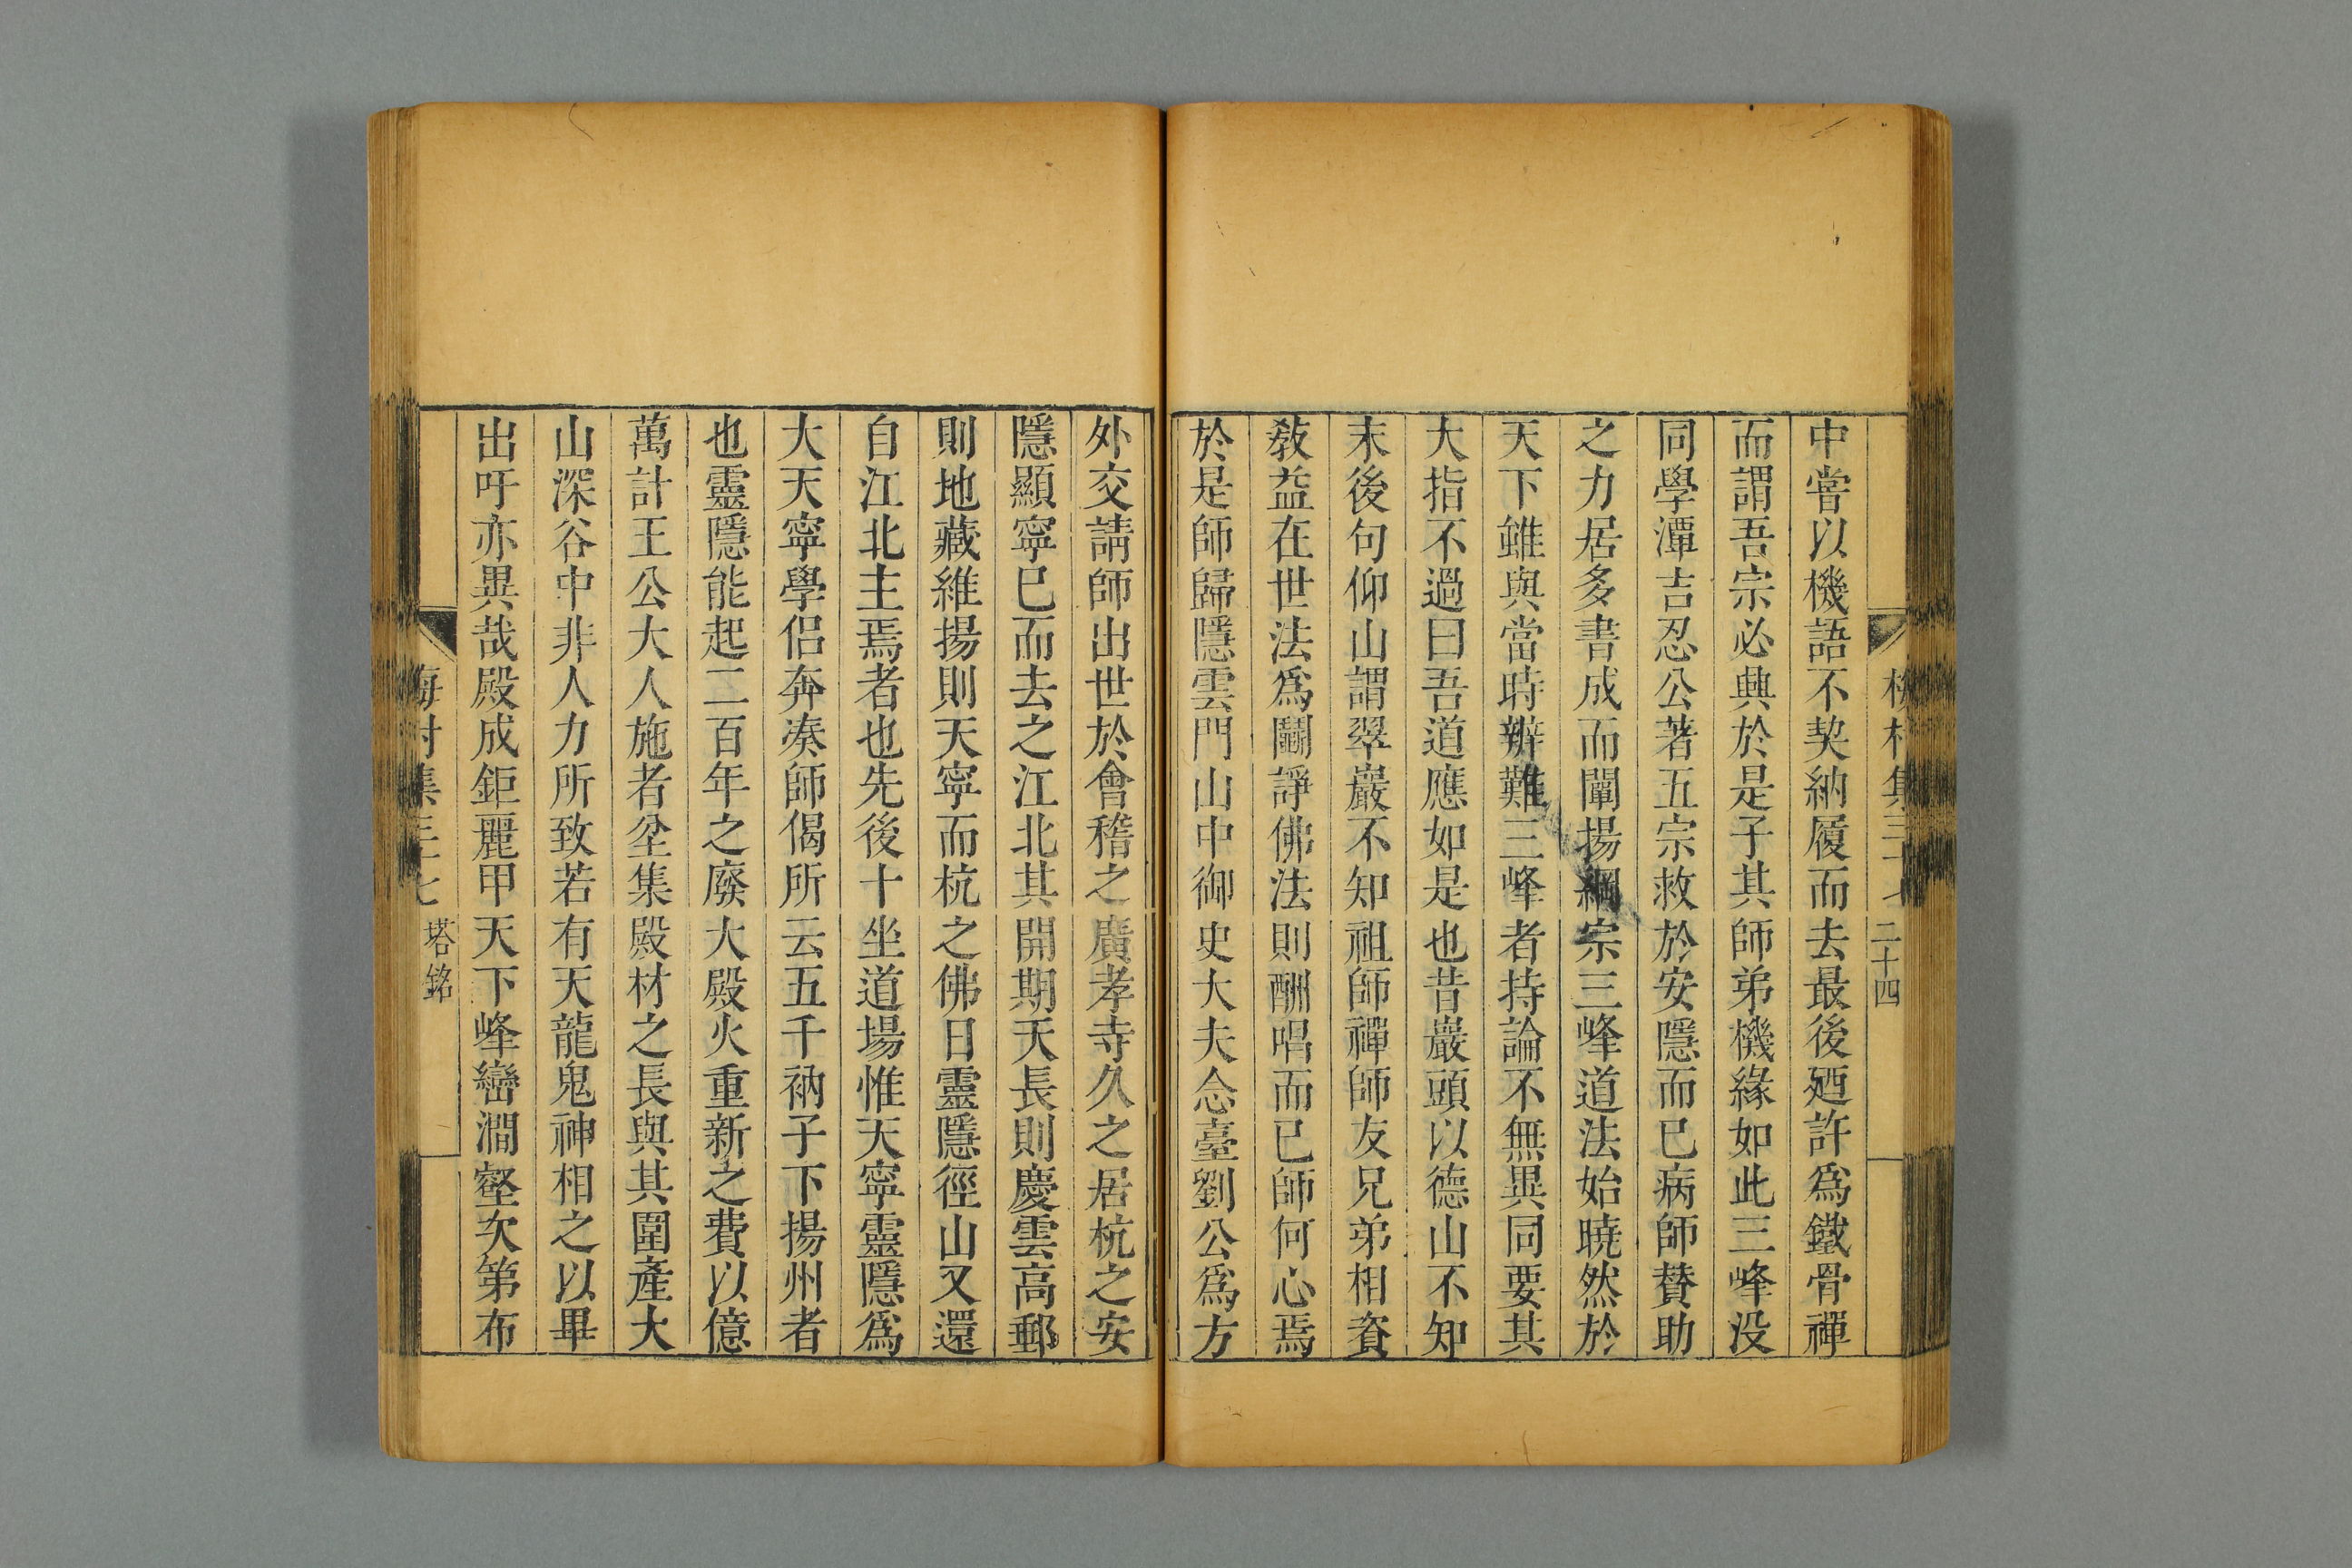 梅村集三十七
二十四
中嘗以機語不契納履而去最後廼許爲鐵骨禪
而謂吾宗必興於是子其師弟機緣如此三峰没
同學潭吉忍公著五宗救於安隱而已病師賛助
之力居多書成而闡揚綱宗三峰道法始曉然於
天下雖與當時辦難三峰者持論不無異同要其
大指不過曰吾道應如是也昔巖頭以德山不知
末後句仰山謂翠巖不知祖師禪師友兄弟相資
敎益在世法爲鬭諍佛法則酬唱而已師何心焉
於是師歸隱雲門山中御史大夫念臺劉公爲方
外交請師出世於會稽之廣孝寺久之居杭之安
隱顯寧已而去之江北其開期天長則慶雲高郵
則地藏維揚則天寧而杭之佛日靈隱徑山又還
自江北主焉者也先後十坐道場惟天寧靈隱爲
大天寧學侶奔湊師偈所云五千衲子下揚州者
也靈隱能起二百年之廢大殿火重新之費以億
萬計王公大人施者坌集殿材之長與其圍產大
山深谷中非人力所致若有天龍鬼神相之以畢
出吁亦異哉殿成鉅麗甲天下峰巒澗壑次第布
梅村集三十七
塔銘